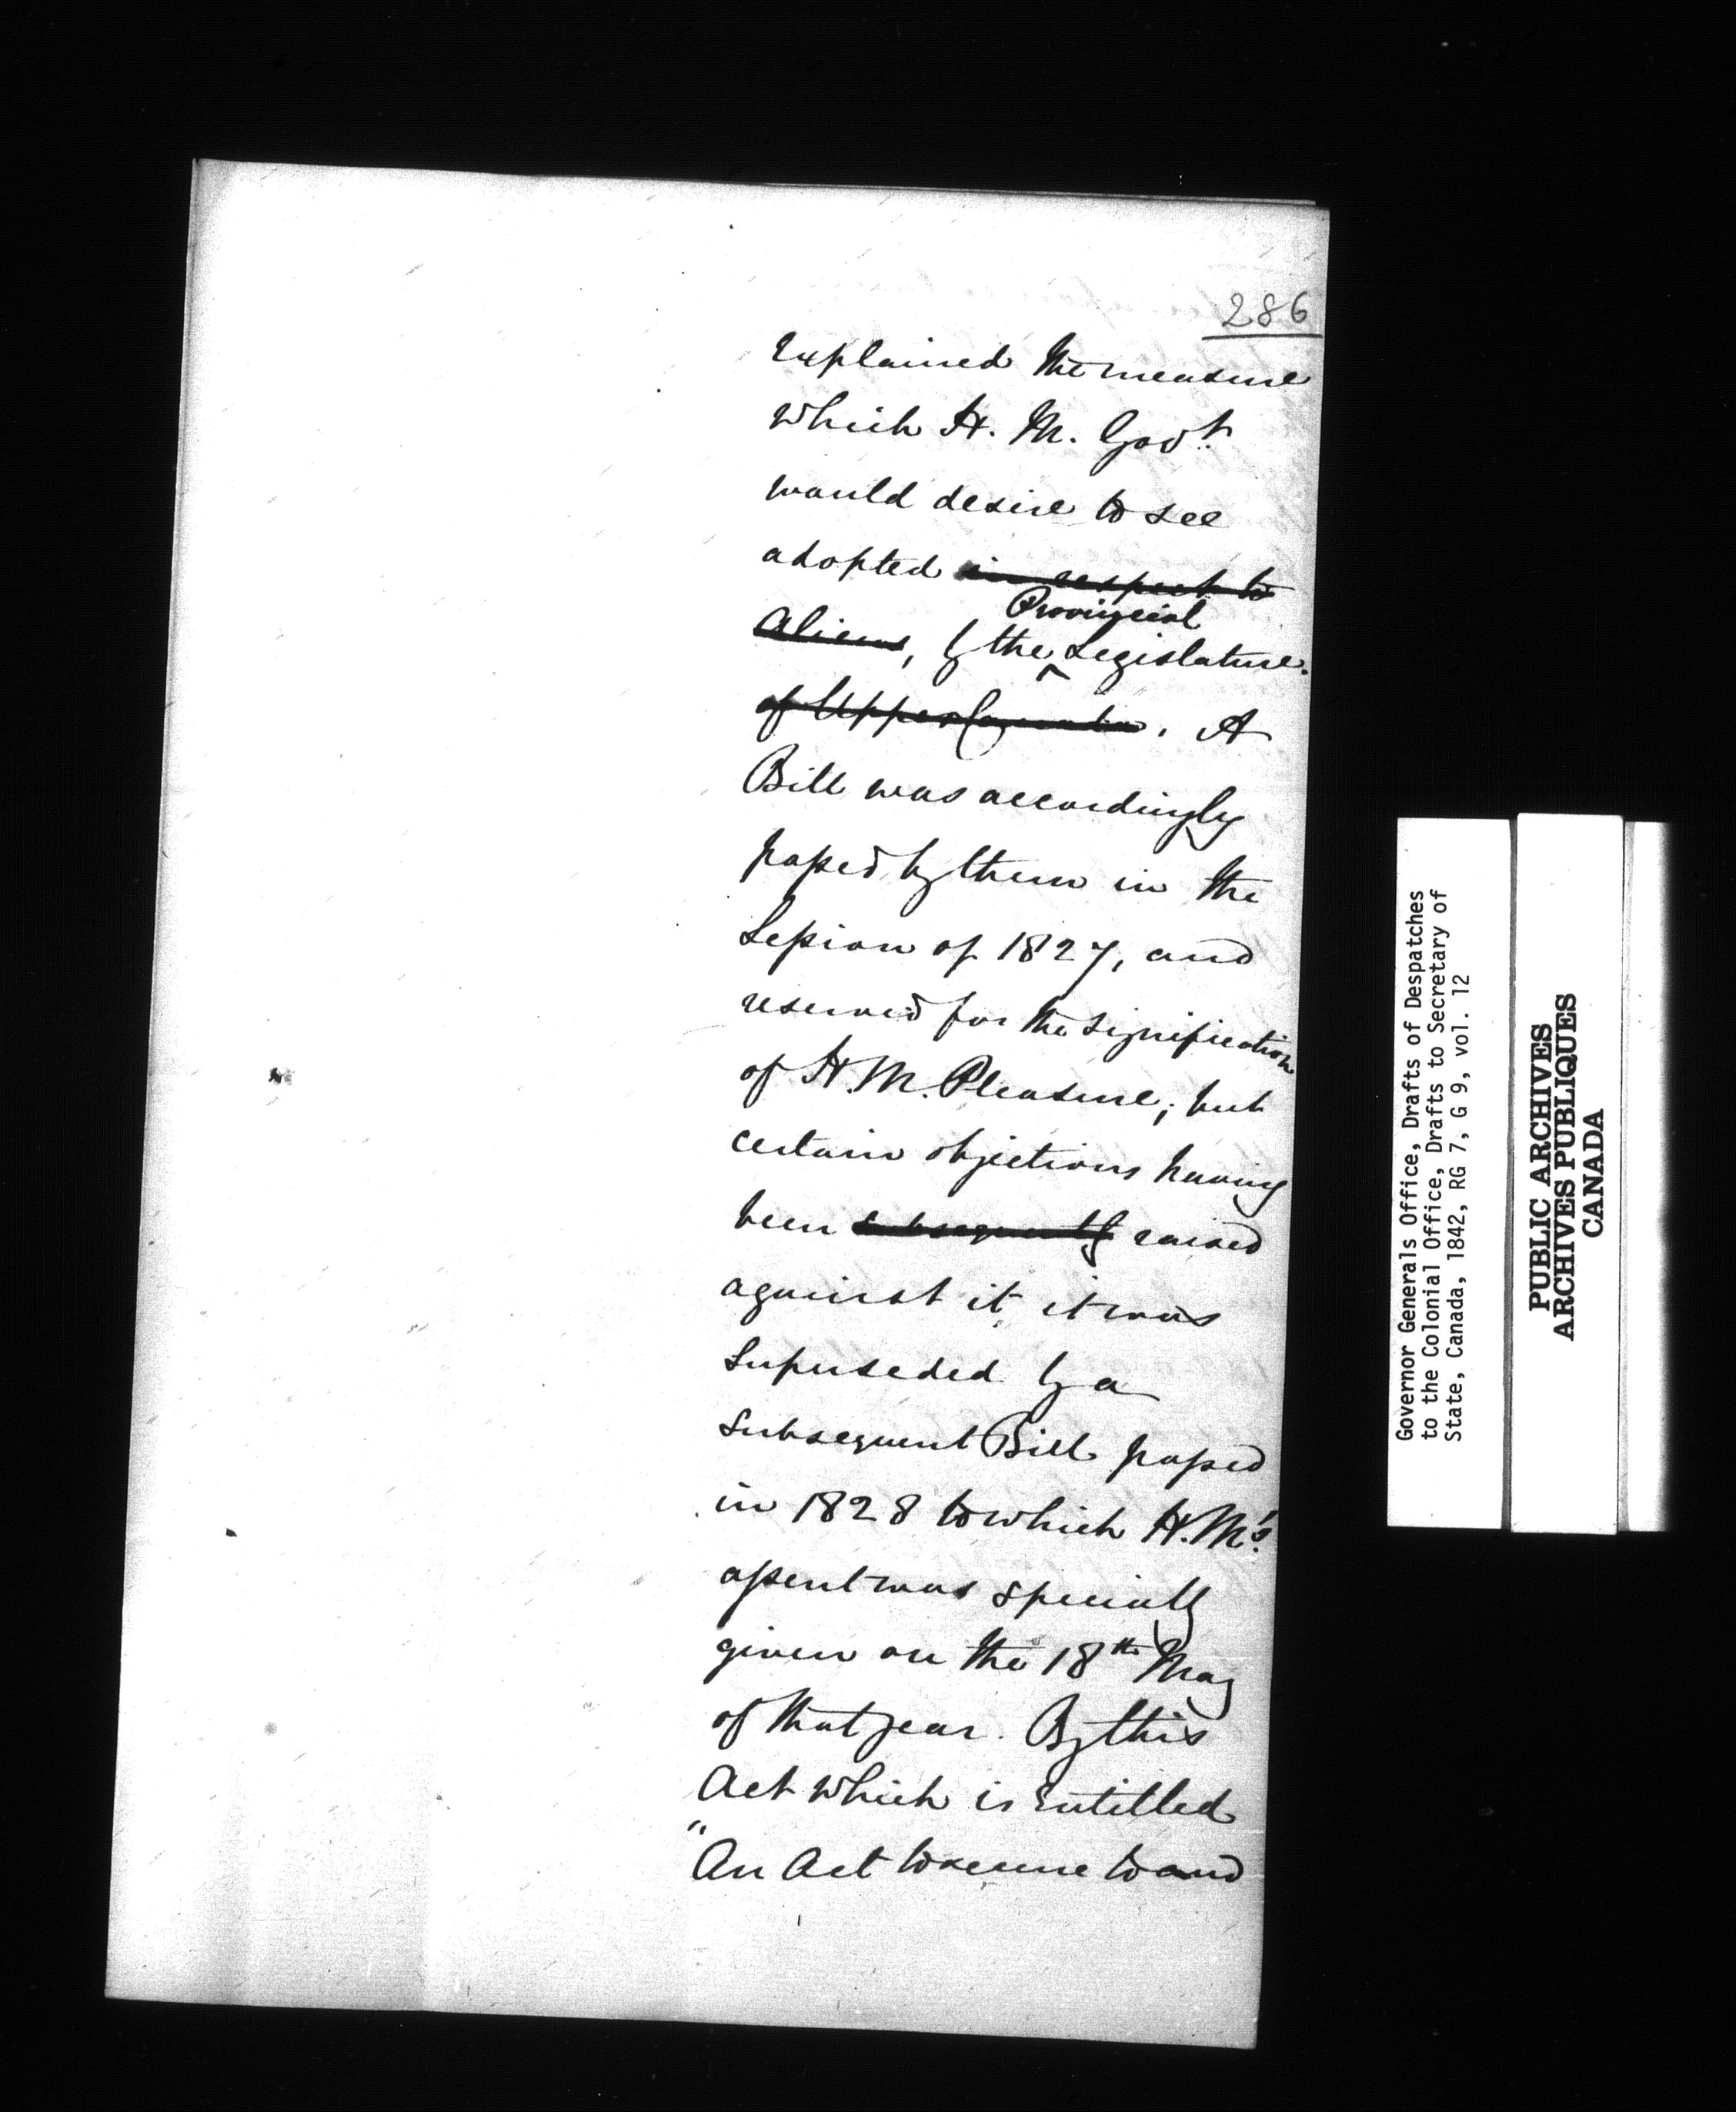 286
Explained the measure
which H. M. Govt.
would desire to see
adopted in respect to
Provincial
Aliens, by the Legislature.
of Upper Canada. A
Bill was accordingly
passed by them in the
Session of 1827, and
reserved for the signification
of H. M. Pleasure; but
certain objections having
been subsequently raised
against it it was
superseded by a
subsequent Bill passed
in 1828 to which H. M's.
assent was specially
given on the 18th May
of that year. By this
Act which is Entitled
"An Act to secure to and
Governor Generals Office, Drafts of Despatches
to the Colonial Office, Drafts to Secretary of
State, Canada, 1842, RG 7, G 9, vol. 12
PUBLIC ARCHIVES
ARCHIVES PUBLIQUES
CANADA